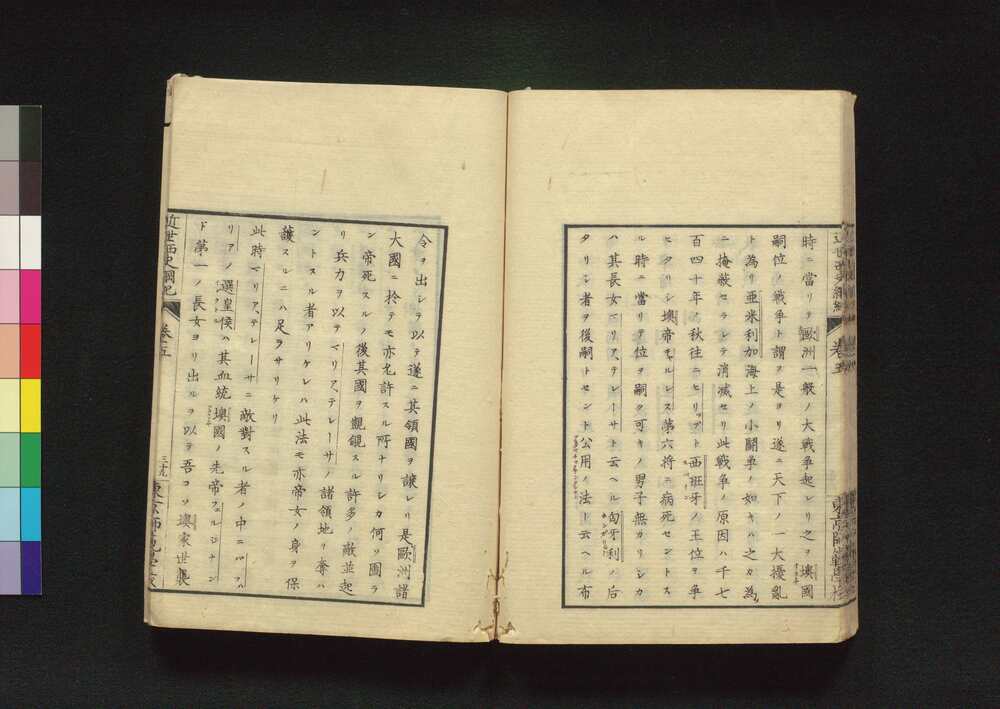 時ニ當リテ歐洲一般ノ大戰爭起レリ之ヲ墺國
嗣位ノ戰爭ト謂ヲ是ヨリ遂ニ天下ノ一大擾亂
ト為リ亜米利加海上ノ小鬪爭ノ如キハ之カ為
ニ掩蔽セラレテ消滅セリ此戰爭ノ原因ハ千七
百四十年ノ秋往ニヒリップト西班牙ノ王位ヲ爭
ヒタリシ墺帝モルレス第六将ニ病死セントス
ル時ニ當リテ位ヲ嗣ク可キノ男子無カリシカ
ハ其長女マリア、テレーサト云ヘル匈牙利ノ后
タリシ者ヲ後嗣トセント公用ノ法ト云ヘル布
令ヲ出シテ以テ遂ニ其領國ヲ讓レリ是歐洲諸
大國ニ於テモ亦允許スル所ナリシカ何ソ圖ラ
ン帝死スルノ後其國ヲ覬覦スル許多ノ敵並起
リ兵力ヲ以テマリア、テレーサノ諸領地ヲ奪ハ
ントスル者アリケレハ此法モ亦帝女ノ身ヲ保
護スルニハ足ラサリケリ
此時マリア、テレーサニ敵對スル者ノ中ニバハ
リアノ選皇侯ハ其血統墺國ノ先帝フェルジナン
ド第一ノ長女ヨリ出ルヲ以テ吾コソ墺家世襲
近世西史綱紀
卷五
三九